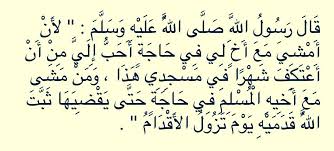 قَالَ رَسُولُ اللَّهِ صَلَّى اللَّهُ عَلَيْهِ وَسَلَّمَ : " لأَنْ
أَمْشِيَ مَعَ أَخٍ لِي فِي حَاجَةٍ أَحَبُّ إِلَيَّ مِنْ أَنْ
أَعْتَكِفَ شَهْرًا فِي مَسْجِدِي هَذَا ، وَمَنْ مَشَى
مَعَ أَخِيهِ الْمُسْلِمِ فِي حَاجَةٍ حَتَّى يَقْضِيَهَا ثَبَّتَ
اللَّهُ قَدَمَيْهِ يَوْمَ تَزُولُ الأَقْدَامُ " .